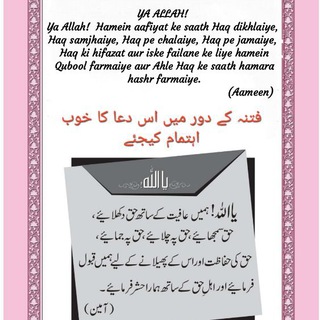 YA ALLAH!
Ya Allah! Hamein aafiyat ke saath Haq dikhlaiye,
Haq samjhaiye, Haq pe chalaiye, Haq pe jamaiye,
Haq ki hifazat aur iske failane ke liye hamein
Qubool farmaiye aur Ahle Haq ke saath hamara
hashr farmaiye.
(Aameen)
فتنہ کے دور میں اس دعا کا خوب
اہتمام کیجئے
یااللہ
یااللہ! ہمیں عافیت کے ساتھ حق دکھلائیے،
حق سمجھائیے، حق پہ چلائیے، حق پہ جمائیے،
حق کی حفاظت اور اس کے پھیلانے کے لیے ہمیں قبول
فرمائیے اور اہلِ حق کے ساتھ ہمارا حشر فرمائیے۔
(آمین)